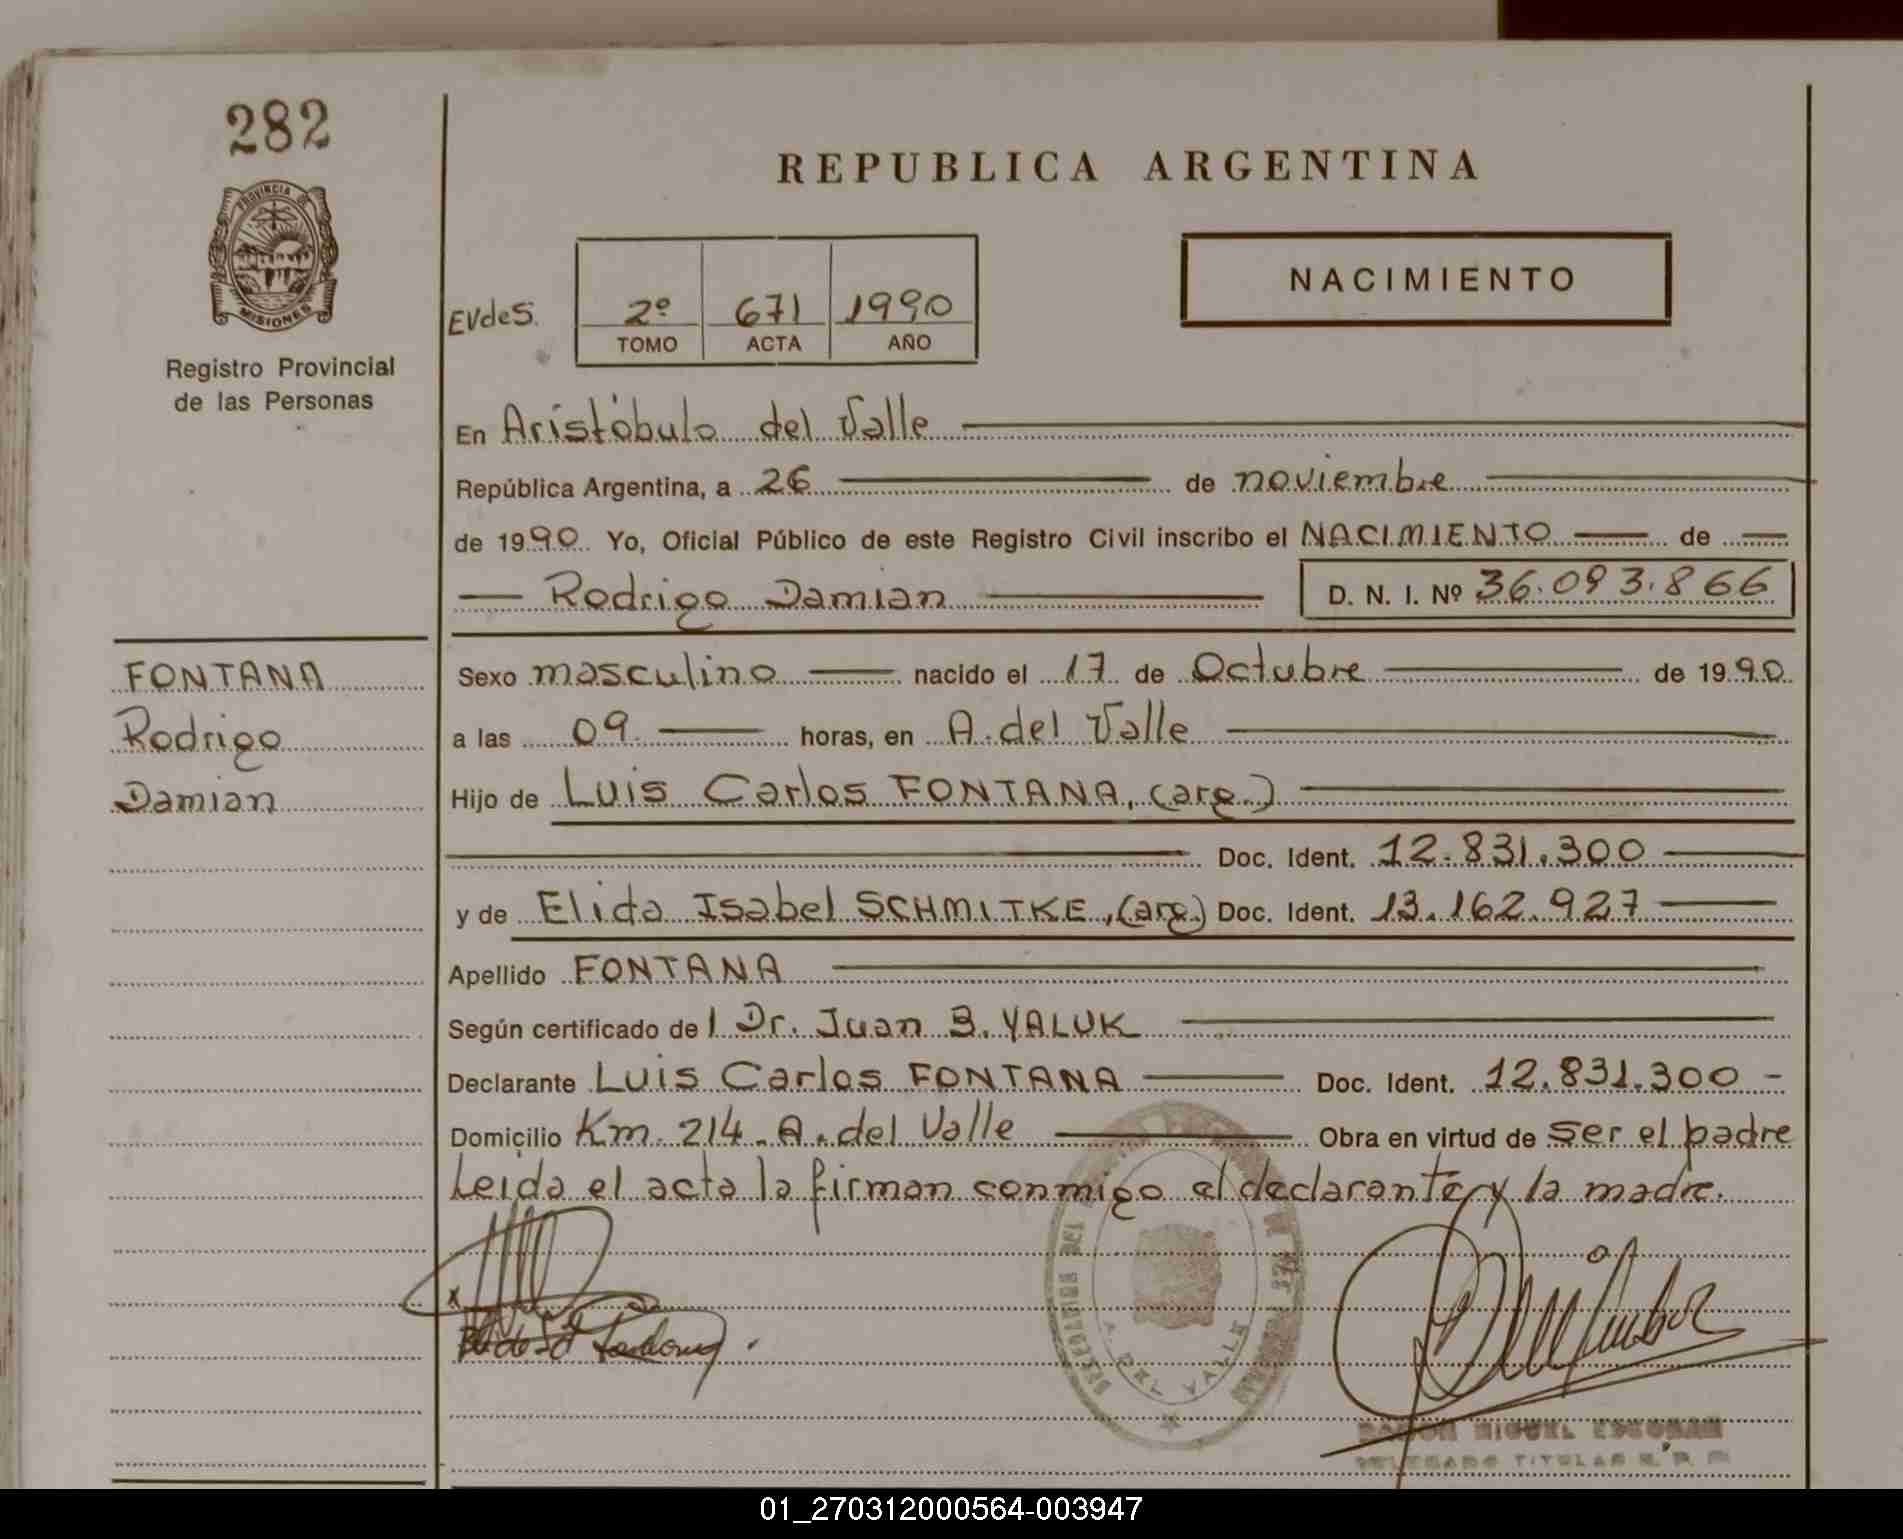 282
PROVINCIA DE
MISIONES
Registro Provincial
de las Personas
REPUBLICA ARGENTINA
NACIMIENTO
EVdeS.
2º 671 1990
TOMO ACTA AÑO
En Aristóbulo del Valle
República Argentina, a 26 de noviembre
de 1990 Yo, Oficial Público de este Registro Civil inscribo el NACIMIENTO de
Rodrigo Damian D. N. I. Nº 36.093.866
FONTANA
Rodrigo
Damian
Sexo masculino nacido el 17 de Octubre de 1990
a las 09 horas, en A. del Valle
Hijo de Luis Carlos FONTANA, (arg.)
Doc. Ident. 12.831.300
y de Elida Isabel SCHMITKE, (arg.) Doc. Ident. 13.162.927
Apellido FONTANA
Según certificado del Dr. Juan B. YALUK
Declarante Luis Carlos FONTANA Doc. Ident. 12.831.300 -
Domicilio Km. 214. A. del Valle Obra en virtud de ser el padre
Leída el acta la firman conmigo el declarante y la madre.
A. DEL VALLE
RAMON MIGUEL ESCOBAR
DELEGADO TITULAR R. P. P.
01_270312000564-003947